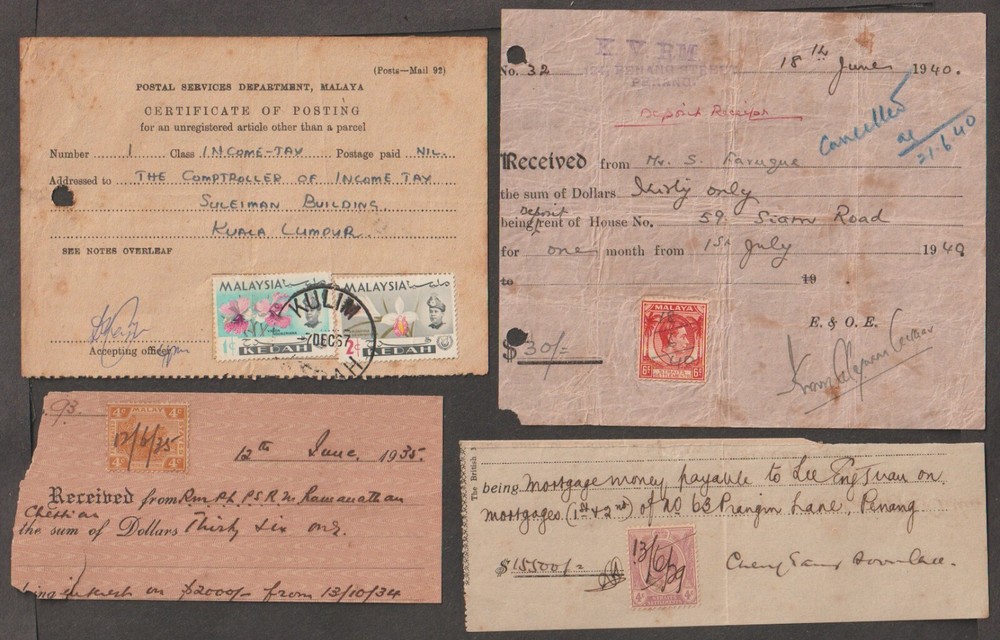 (Posts—Mail 92)
POSTAL SERVICES DEPARTMENT, MALAYA
CERTIFICATE OF POSTING
for an unregistered article other than a parcel
Number 1 Class INCOME-TAX Postage paid NIL.
Addressed to THE COMPTROLLER OF INCOME TAX
SULEIMAN BUILDING
KUALA LUMPUR.
SEE NOTES OVERLEAF
Accepting officer
MALAYSIA
1¢ KEDAH
MALAYSIA
2¢ KEDAH
KULIM
-7DEC67
KEDAH
No. 32
PENANG STREET
PENANG
18th June 1940.
Deposit Receipt
Cancelled
21.6.40
Received from Mr. S. Faruque
the sum of Dollars thirty only
being Deposit rent of House No. 59 Siam Road
for one month from 1st July 1940
to 19
E. & O. E.
$ 30/=
MALAYA
6c 6c
93.
4c MALAY 4c
12/6/35
4c 4c
12th June, 1935.
Received from Rm. PL. P.S.R.M. Ramanathan
Chettiar
the sum of Dollars Thirty six only.
being interest on $2000/- from 13/10/34
The British
being mortgage money payable to Lee Eng Tuan on
mortgages (1st & 2nd) of No 63 Prangin Lane, Penang
$15500/=
13/6/29
4c 4c